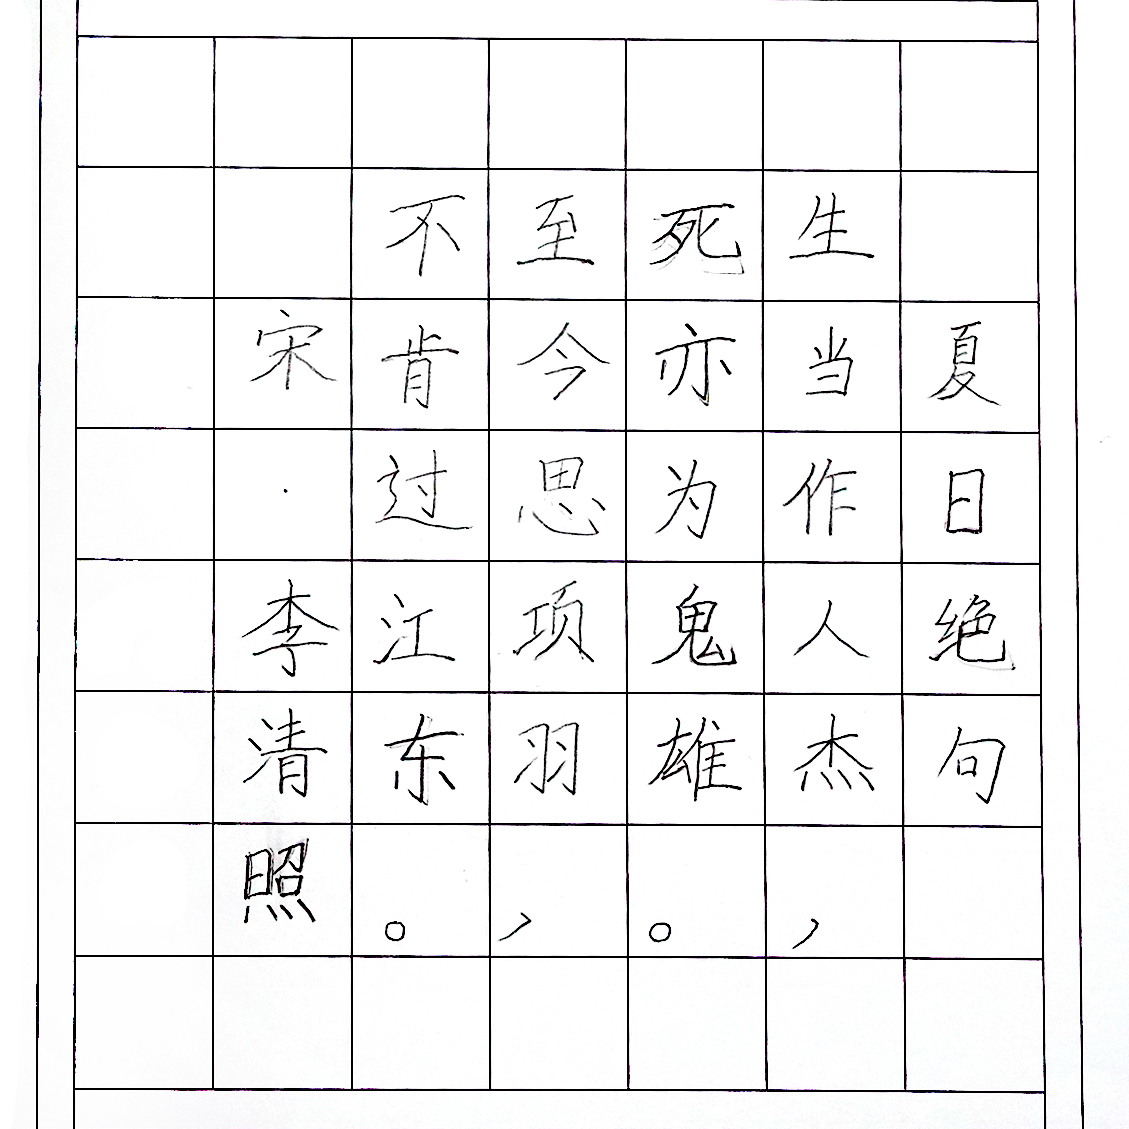 夏日绝句
生当作人杰，
死亦为鬼雄。
至今思项羽，
不肯过江东。
宋·李清照